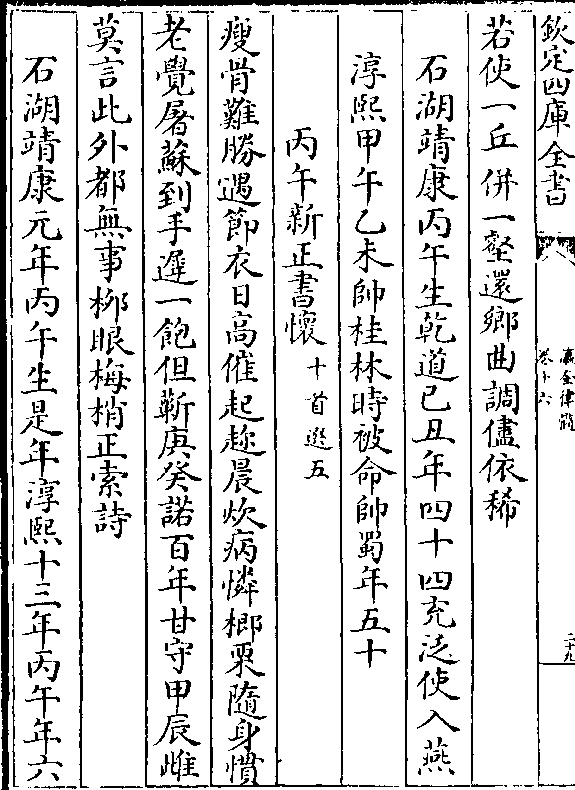 欽定四庫全書
瀛奎律髓
卷十六
二十九
若使一丘併一壑還鄉曲調儘依稀
石湖靖康丙午生乾道己丑年四十四充泛使入燕
淳熙甲午乙未帥桂林時被命帥蜀年五十
丙午新正書懷十首選五
瘦骨難勝遇節衣日高催起趂晨炊病憐榔栗隨身慣
老覺屠蘇到手遲一飽但蘄庚癸諾百年甘守甲辰雌
莫言此外都無事柳眼梅梢正索詩
石湖靖康元年丙午生是年淳熙十三年丙午年六